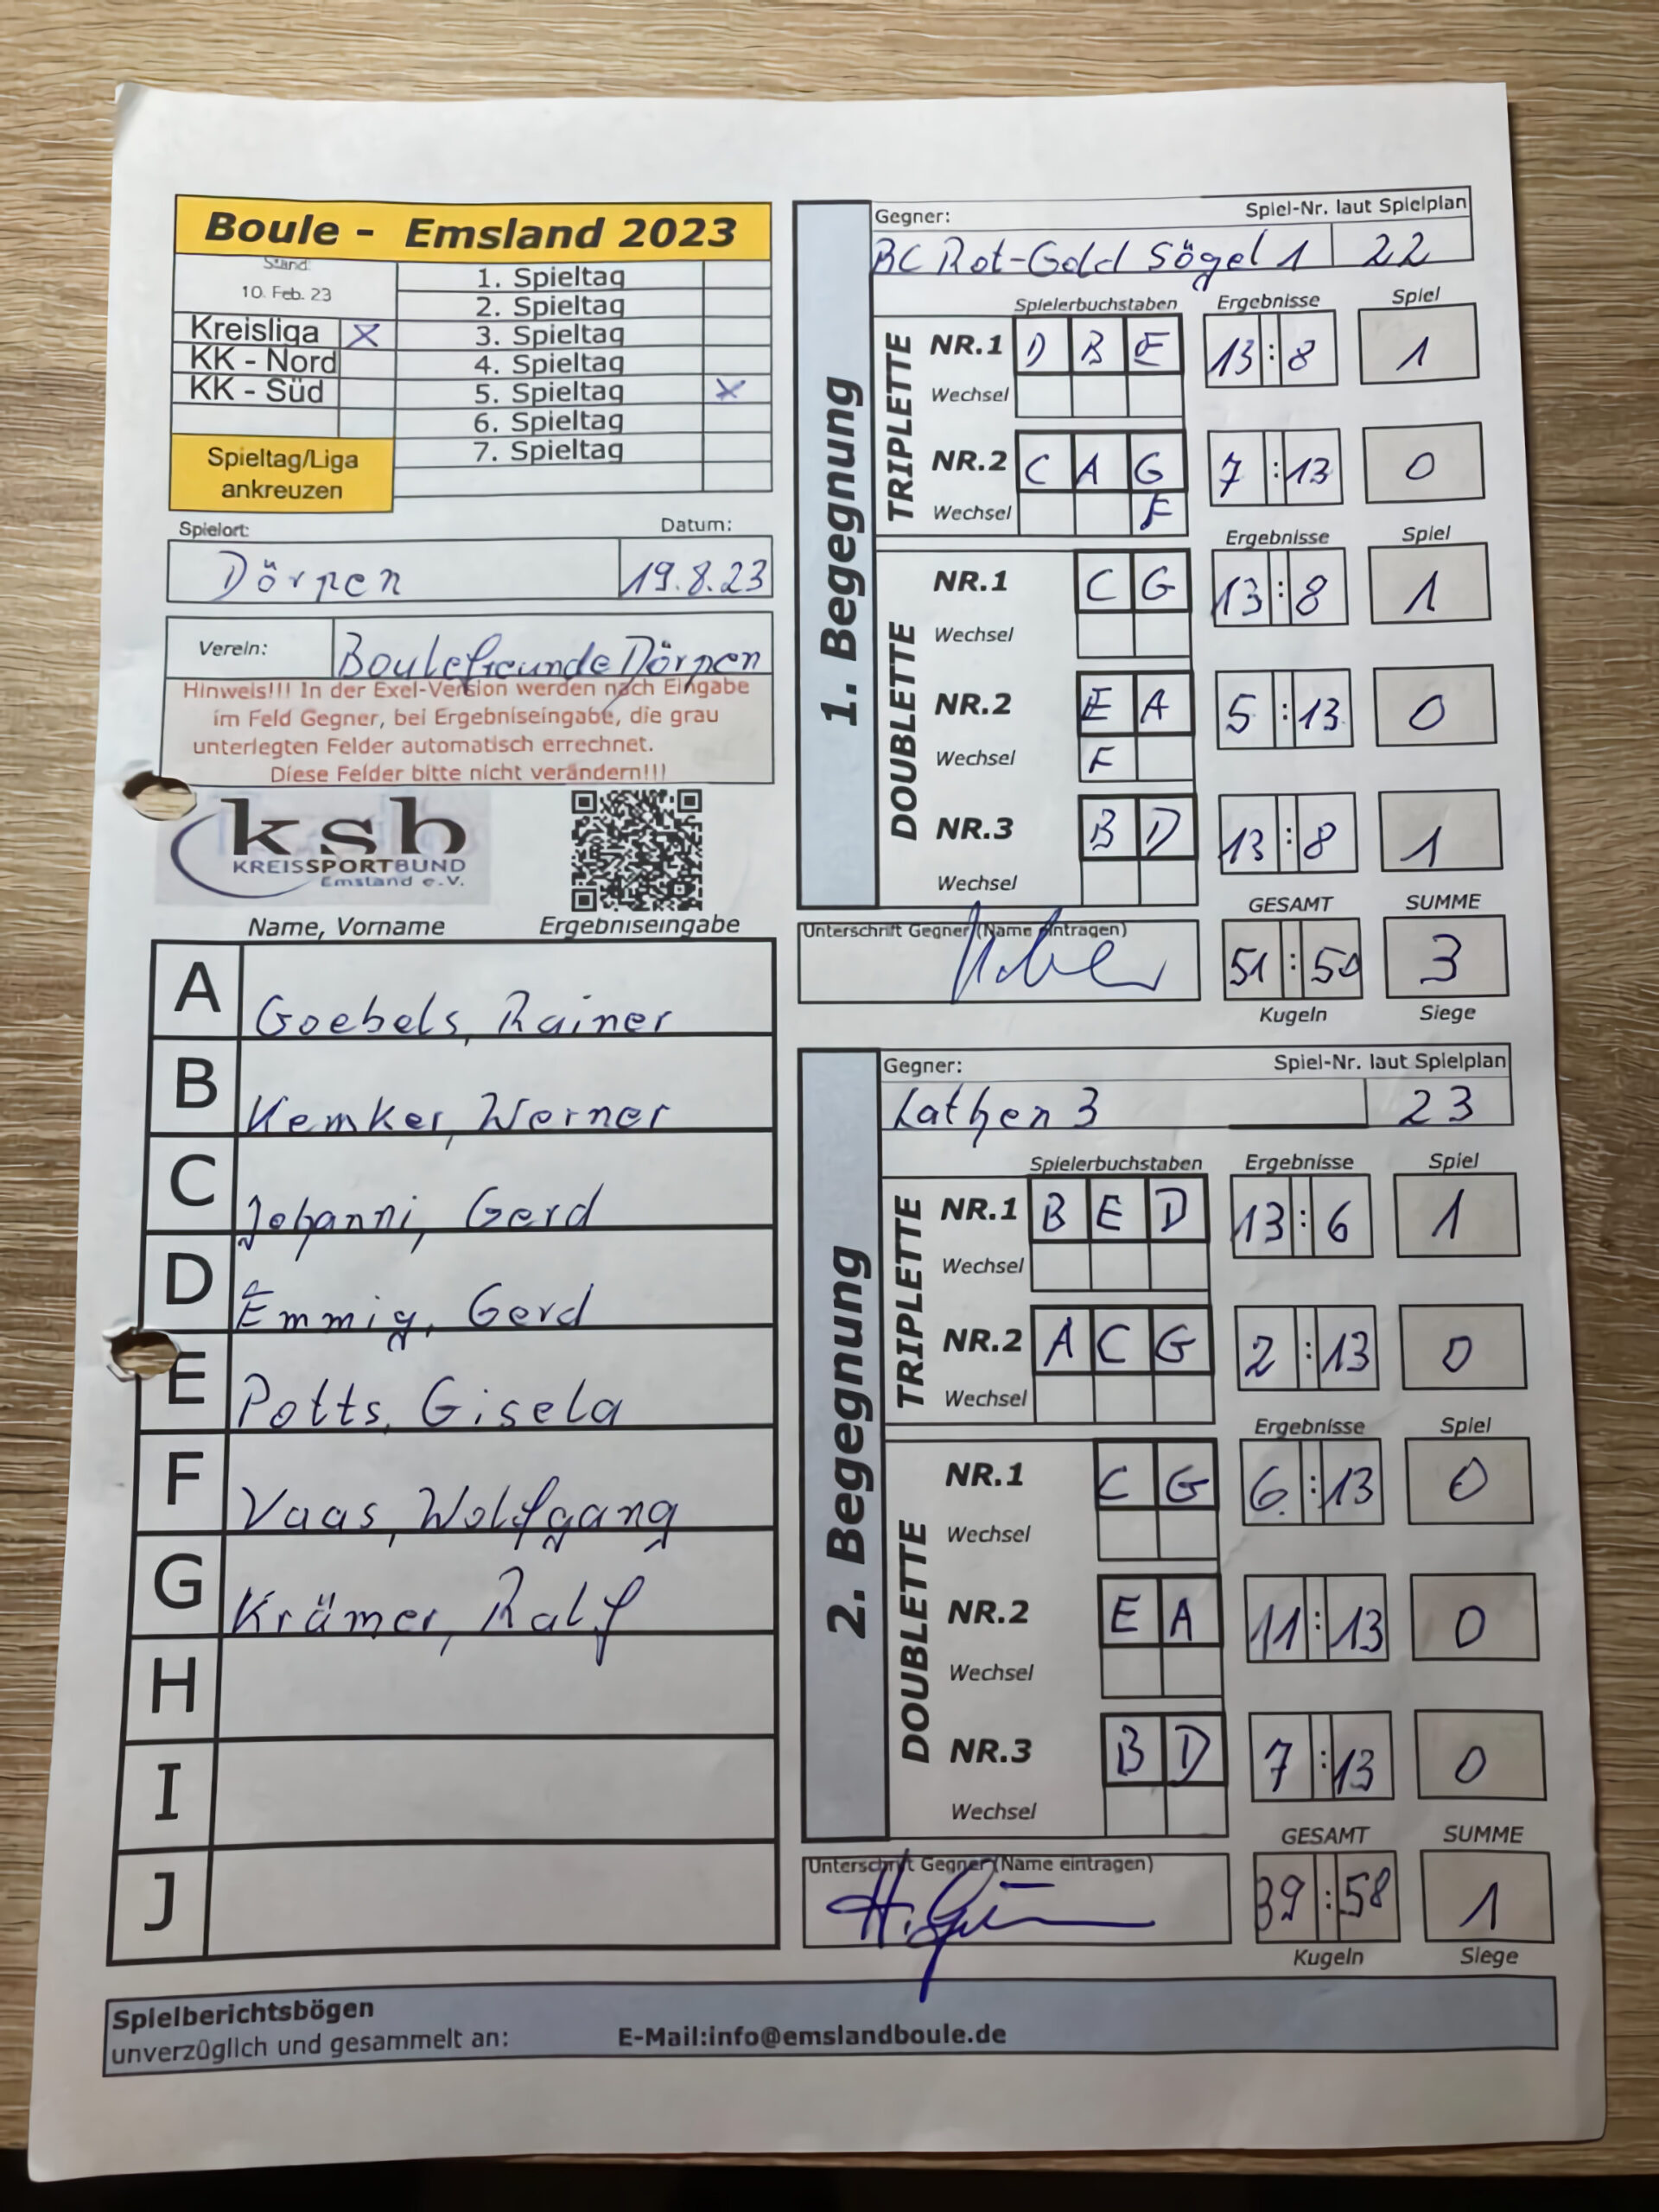 Boule - Emsland 2023
Stand:
10. Feb. 23
Kreisliga X
KK - Nord
KK - Süd
Spieltag/Liga
ankreuzen
1. Spieltag
2. Spieltag
3. Spieltag
4. Spieltag
5. Spieltag X
6. Spieltag
7. Spieltag
Spielort: Datum:
Dörpen 19.8.23
Verein: Boulefreunde Dörpen
Hinweis!!! In der Exel-Version werden nach Eingabe
im Feld Gegner, bei Ergebniseingabe, die grau
unterlegten Felder automatisch errechnet.
Diese Felder bitte nicht verändern!!!
ksb
KREISSPORTBUND
Emsland e.V.
Name, Vorname Ergebniseingabe
A Goebels, Rainer
B Kemker, Werner
C Johanni, Gerd
D Emmig, Gerd
E Potts, Gisela
F Vaas, Wolfgang
G Krämer, Ralf
H
I
J
1. Begegnung
Gegner: Spiel-Nr. laut Spielplan
BC Rot-Gold Sögel 1 22
Spielerbuchstaben Ergebnisse Spiel
TRIPLETTE
NR.1 D B E 13 : 8 1
Wechsel
NR.2 C A G 7 : 13 0
Wechsel F
Ergebnisse Spiel
DOUBLETTE
NR.1 C G 13 : 8 1
Wechsel
NR.2 E A 5 : 13 0
Wechsel F
NR.3 B D 13 : 8 1
Wechsel
GESAMT SUMME
Unterschrift Gegner (Name eintragen)
51 : 50 3
Kugeln Siege
2. Begegnung
Gegner: Spiel-Nr. laut Spielplan
Lathen 3 23
Spielerbuchstaben Ergebnisse Spiel
TRIPLETTE
NR.1 B E D 13 : 6 1
Wechsel
NR.2 A C G 2 : 13 0
Wechsel
Ergebnisse Spiel
DOUBLETTE
NR.1 C G 6 : 13 0
Wechsel
NR.2 E A 11 : 13 0
Wechsel
NR.3 B D 7 : 13 0
Wechsel
GESAMT SUMME
Unterschrift Gegner (Name eintragen)
39 : 58 1
Kugeln Siege
Spielberichtsbögen
unverzüglich und gesammelt an: E-Mail:info@emslandboule.de